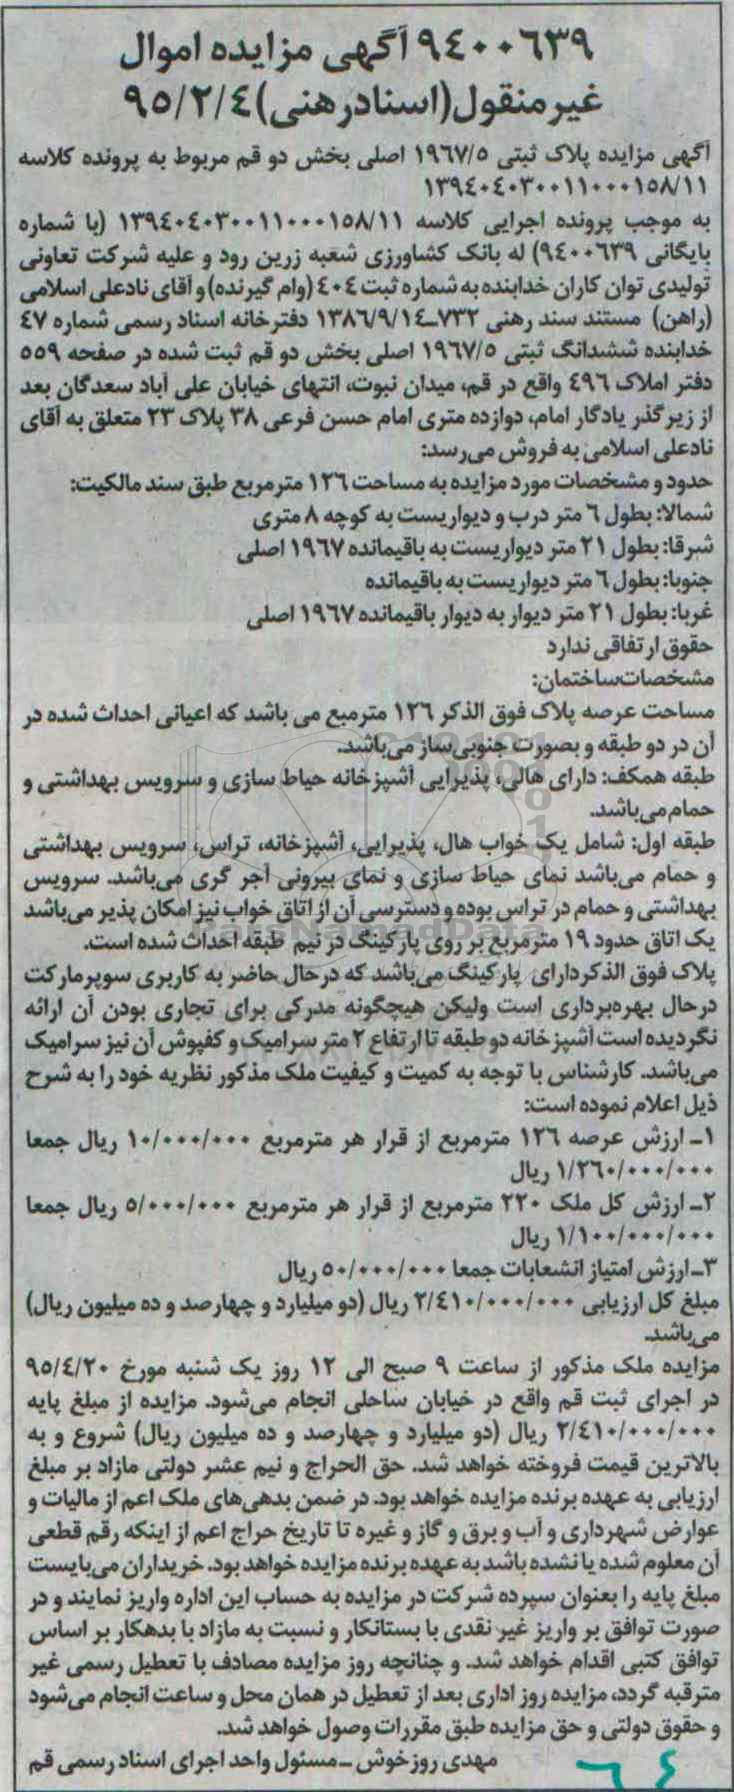 ۹٤۰۰٦۳۹ آگهی مزایده اموال
غیرمنقول(اسنادرهنی)۹۵/۲/٤
آگهی مزایده پلاک ثبتی ۱۹٦۷/۵ اصلی بخش دو قم مربوط به پرونده کلاسه
۱۳۹٤۰٤۰۳۰۰۱۱۰۰۰۱۵۸/۱۱
به موجب پرونده اجرایی کلاسه ۱۳۹٤۰٤۰۳۰۰۱۱۰۰۰۱۵۸/۱۱ (با شماره
بایگانی ۹٤۰۰٦۳۹) له بانک کشاورزی شعبه زرین رود و علیه شرکت تعاونی
تولیدی توان کاران خدابنده به شماره ثبت ٤۰٤ (وام گیرنده) و آقای نادعلی اسلامی
(راهن) مستند سند رهنی ۷۳۲-۱۳۸٦/۹/۱٤ دفترخانه اسناد رسمی شماره ٤۷
خدابنده ششدانگ ثبتی ۱۹٦۷/۵ اصلی بخش دو قم ثبت شده در صفحه ۵۵۹
دفتر املاک ٤۹٦ واقع در قم، میدان نبوت، انتهای خیابان علی آباد سعدگان بعد
از زیرگذر یادگار امام، دوازده متری امام حسن فرعی ۳۸ پلاک ۲۳ متعلق به آقای
نادعلی اسلامی به فروش می‌رسد:
حدود و مشخصات مورد مزایده به مساحت ۱۲٦ مترمربع طبق سند مالکیت:
شمالا: بطول ٦ متر درب و دیواریست به کوچه ۸ متری
شرقا: بطول ۲۱ متر دیواریست به باقیمانده ۱۹٦۷ اصلی
جنوبا: بطول ٦ متر دیواریست به باقیمانده
غربا: بطول ۲۱ متر دیوار به دیوار باقیمانده ۱۹٦۷ اصلی
حقوق ارتفاقی ندارد
مشخصات‌ساختمان:
مساحت عرصه پلاک فوق الذکر ۱۲٦ مترمبع می باشد که اعیانی احداث شده در
آن در دو طبقه و بصورت جنوبی‌ساز می‌باشد.
طبقه همکف: دارای هالی، پذیرایی آشپزخانه حیاط سازی و سرویس بهداشتی و
حمام می‌باشد.
طبقه اول: شامل یک خواب هال، پذیرایی، آشپزخانه، تراس، سرویس بهداشتی
و حمام می‌باشد نمای حیاط سازی و نمای بیرونی آجر گری می‌باشد. سرویس
بهداشتی و حمام در تراس بوده و دسترسی آن از اتاق خواب نیز امکان پذیر می‌باشد
یک اتاق حدود ۱۹ مترمربع بر روی پارکینگ در نیم طبقه احداث شده است.
پلاک فوق الذکردارای پارکینگ می‌باشد که درحال حاضر به کاربری سوپرمارکت
درحال بهره‌برداری است ولیکن هیچگونه مدرکی برای تجاری بودن آن ارائه
نگردیده است آشپزخانه دو طبقه تا ارتفاع ۲ متر سرامیک و کفپوش آن نیز سرامیک
می‌باشد. کارشناس با توجه به کمیت و کیفیت ملک مذکور نظریه خود را به شرح
ذیل اعلام نموده است:
۱- ارزش عرصه ۱۲٦ مترمربع از قرار هر مترمربع ۱۰/۰۰۰/۰۰۰ ریال جمعا
۱/۲٦۰/۰۰۰/۰۰۰ ریال
۲- ارزش کل ملک ۲۲۰ مترمربع از قرار هر مترمربع ۵/۰۰۰/۰۰۰ ریال جمعا
۱/۱۰۰/۰۰۰/۰۰۰ ریال
۳- ارزش امتیاز انشعابات جمعا ۵۰/۰۰۰/۰۰۰ ریال
مبلغ کل ارزیابی ۲/٤۱۰/۰۰۰/۰۰۰ ریال (دو میلیارد و چهارصد و ده میلیون ریال)
می‌باشد.
مزایده ملک مذکور از ساعت ۹ صبح الی ۱۲ روز یک شنبه مورخ ۹۵/٤/۲۰
در اجرای ثبت قم واقع در خیابان ساحلی انجام می‌شود. مزایده از مبلغ پایه
۲/٤۱۰/۰۰۰/۰۰۰ ریال (دو میلیارد و چهارصد و ده میلیون ریال) شروع و به
بالاترین قیمت فروخته خواهد شد. حق الحراج و نیم عشر دولتی مازاد بر مبلغ
ارزیابی به عهده برنده مزایده خواهد بود. در ضمن بدهی‌های ملک اعم از مالیات و
عوارض شهرداری و آب و برق و گاز و غیره تا تاریخ حراج اعم از اینکه رقم قطعی
آن معلوم شده یا نشده باشد به عهده برنده مزایده خواهد بود. خریداران می‌بایست
مبلغ پایه را بعنوان سپرده شرکت در مزایده به حساب این اداره واریز نمایند و در
صورت توافق بر واریز غیر نقدی با بستانکار و نسبت به مازاد با بدهکار بر اساس
توافق کتبی اقدام خواهد شد. و چنانچه روز مزایده مصادف با تعطیل رسمی غیر
مترقبه گردد، مزایده روز اداری بعد از تعطیل در همان محل و ساعت انجام می‌شود
و حقوق دولتی و حق مزایده طبق مقررات وصول خواهد شد.
مهدی روزخوش - مسئول واحد اجرای اسناد رسمی قم
٦٤
ParsNamadData